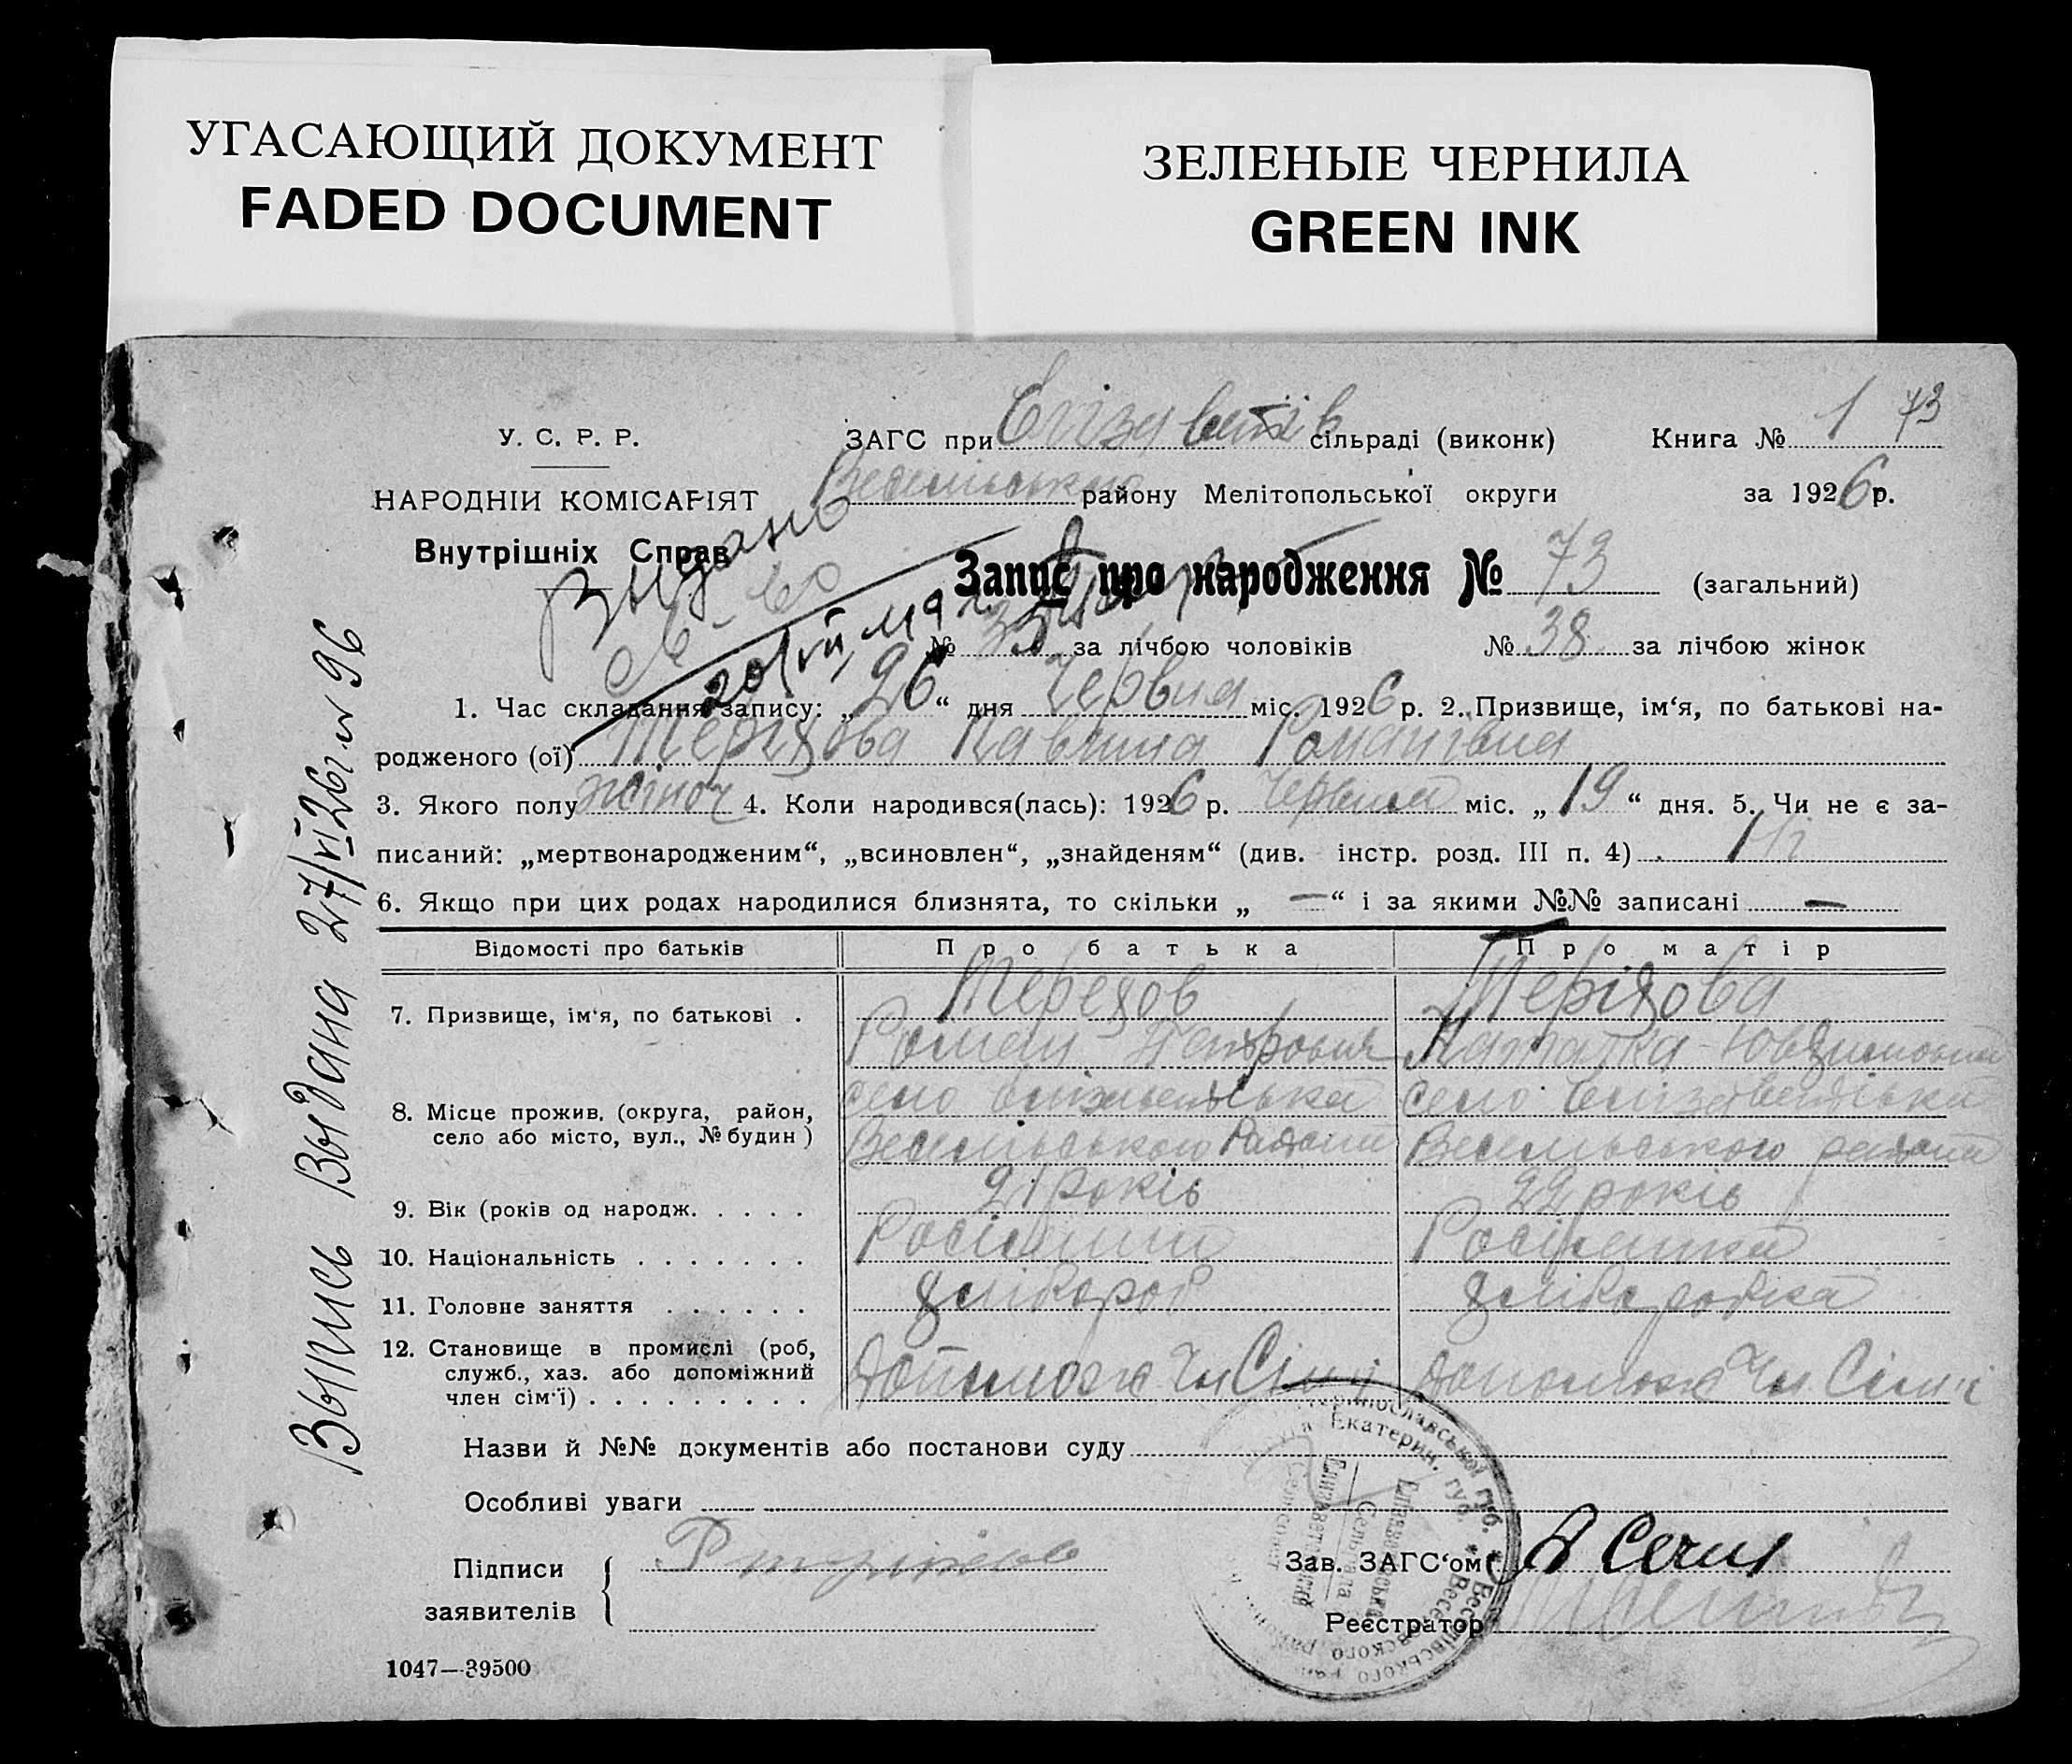 УГАСАЮЩИЙ ДОКУМЕНТ
FADED DOCUMENT
ЗЕЛЕНЫЕ ЧЕРНИЛА
GREEN INK
У. С. Р. Р.
НАРОДНІЙ КОМІСАРІЯТ
Внутрішніх Справ
ЗАГС при сільраді (виконк)
Книга № 1 73
району Мелітопольської округи
за 1926 р.
Запис про народження № 73 (загальний)
№ за лічбою чоловіків № 38 за лічбою жінок
1. Час складання запису: „26“ дня Червня міс. 1926 р. 2. Призвище, ім‘я, по батькові на-
родженого (ої) Терехова Павлина Романівна
3. Якого полу жіноч 4. Коли народився(лась): 1926 р. Червня міс. „19“ дня. 5. Чи не є за-
писаний: „мертвонародженим“, „всиновлен“, „знайденям“ (див. інстр. розд. III п. 4) Ні
6. Якщо при цих родах народилися близнята, то скільки „—“ і за якими №№ записані —
Відомості про батьків
Про батька
Про матір
7. Призвище, ім‘я, по батькові .
Терехов
Роман Петрович
Теріхова
8. Місце прожив. (округа, район,
село або місто, вул., № будин)
село
Весельського района
село
Весельського района
9. Вік (років од народж. . . . .
21 років
22 років
10. Національність . . . . . . .
Росіянин
Росіянка
11. Головне заняття . . . . . .
хлібороб
хліборобка
12. Становище в промислі (роб,
служб., хаз. або допоміжний
член сім‘ї) . . . . . . . . .
Допомож Чл Сімї
Допомож Чл. Сімї
Назви й №№ документів або постанови суду
Особливі уваги
Підписи
заявителів
Зав. ЗАГС‘ом
Реєстратор
1047—39500
Выпись выдана 27/VI 26 г. № 96